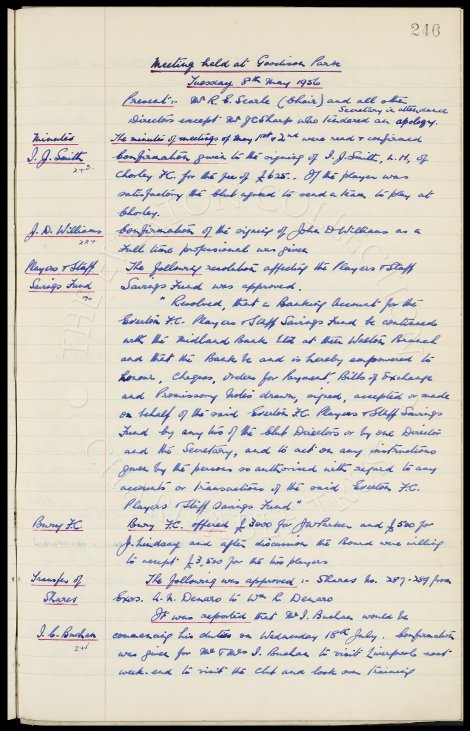 246
Meeting held at Goodison Park
Tuesday 8th May 1956
Present :- Mr R. E. Searle (Chair) and all other
Secretary in attendance
Directors except Mr J C Sharp who tendered an apology.
Minutes The minutes of meetings of May 1st & 2nd were read & confirmed
I. J. Smith Confirmation given to the signing of I. J. Smith, L.H, of
243. Chorley F.C. for the fee of £625. If the player was
satisfactory the Club agreed to send a team to play at
Chorley.
J. D. Williams Confirmation of the signing of John D Williams as a
224 Full time professional was given
Players & Staff The following resolution affecting the Players & Staff
Savings Fund Savings Fund was approved.
" Resolved, that a Banking Account for the
Everton F.C. Players & Staff Savings Fund be continued
with the Midland Bank Ltd at their Walton Branch
and that the Bank be and is hereby empowered to
honour, Cheques, Orders for Payment, Bills of Exchange
and Promissory Notes drawn, signed, accepted or made
on behalf of the said Everton F.C. Players & Staff Savings
Fund by any two of the Club Directors or by one Director
and the Secretary, and to act on any instructions
given by the persons so authorised with regard to any
accounts or transactions of the said Everton F.C.
Players & Staff Savings Fund"
Bury F.C. Bury F.C. offered £3000 for J W Parker and £500 for
J. Lindsay and after discussion the Board were willing
to accept £3,500 for the two players
Transfer of The following was approved :- Shares No. 287-289 from
Shares Exors. Denaro to Wm R Denaro
It was reported that Mr I. Buchan would be
I. C. Buchan commencing his duties on Wednesday 18th July. Confirmation
241 was given for Mr & Mrs I. Buchan to visit Liverpool next
week-end to visit the Club and look over training